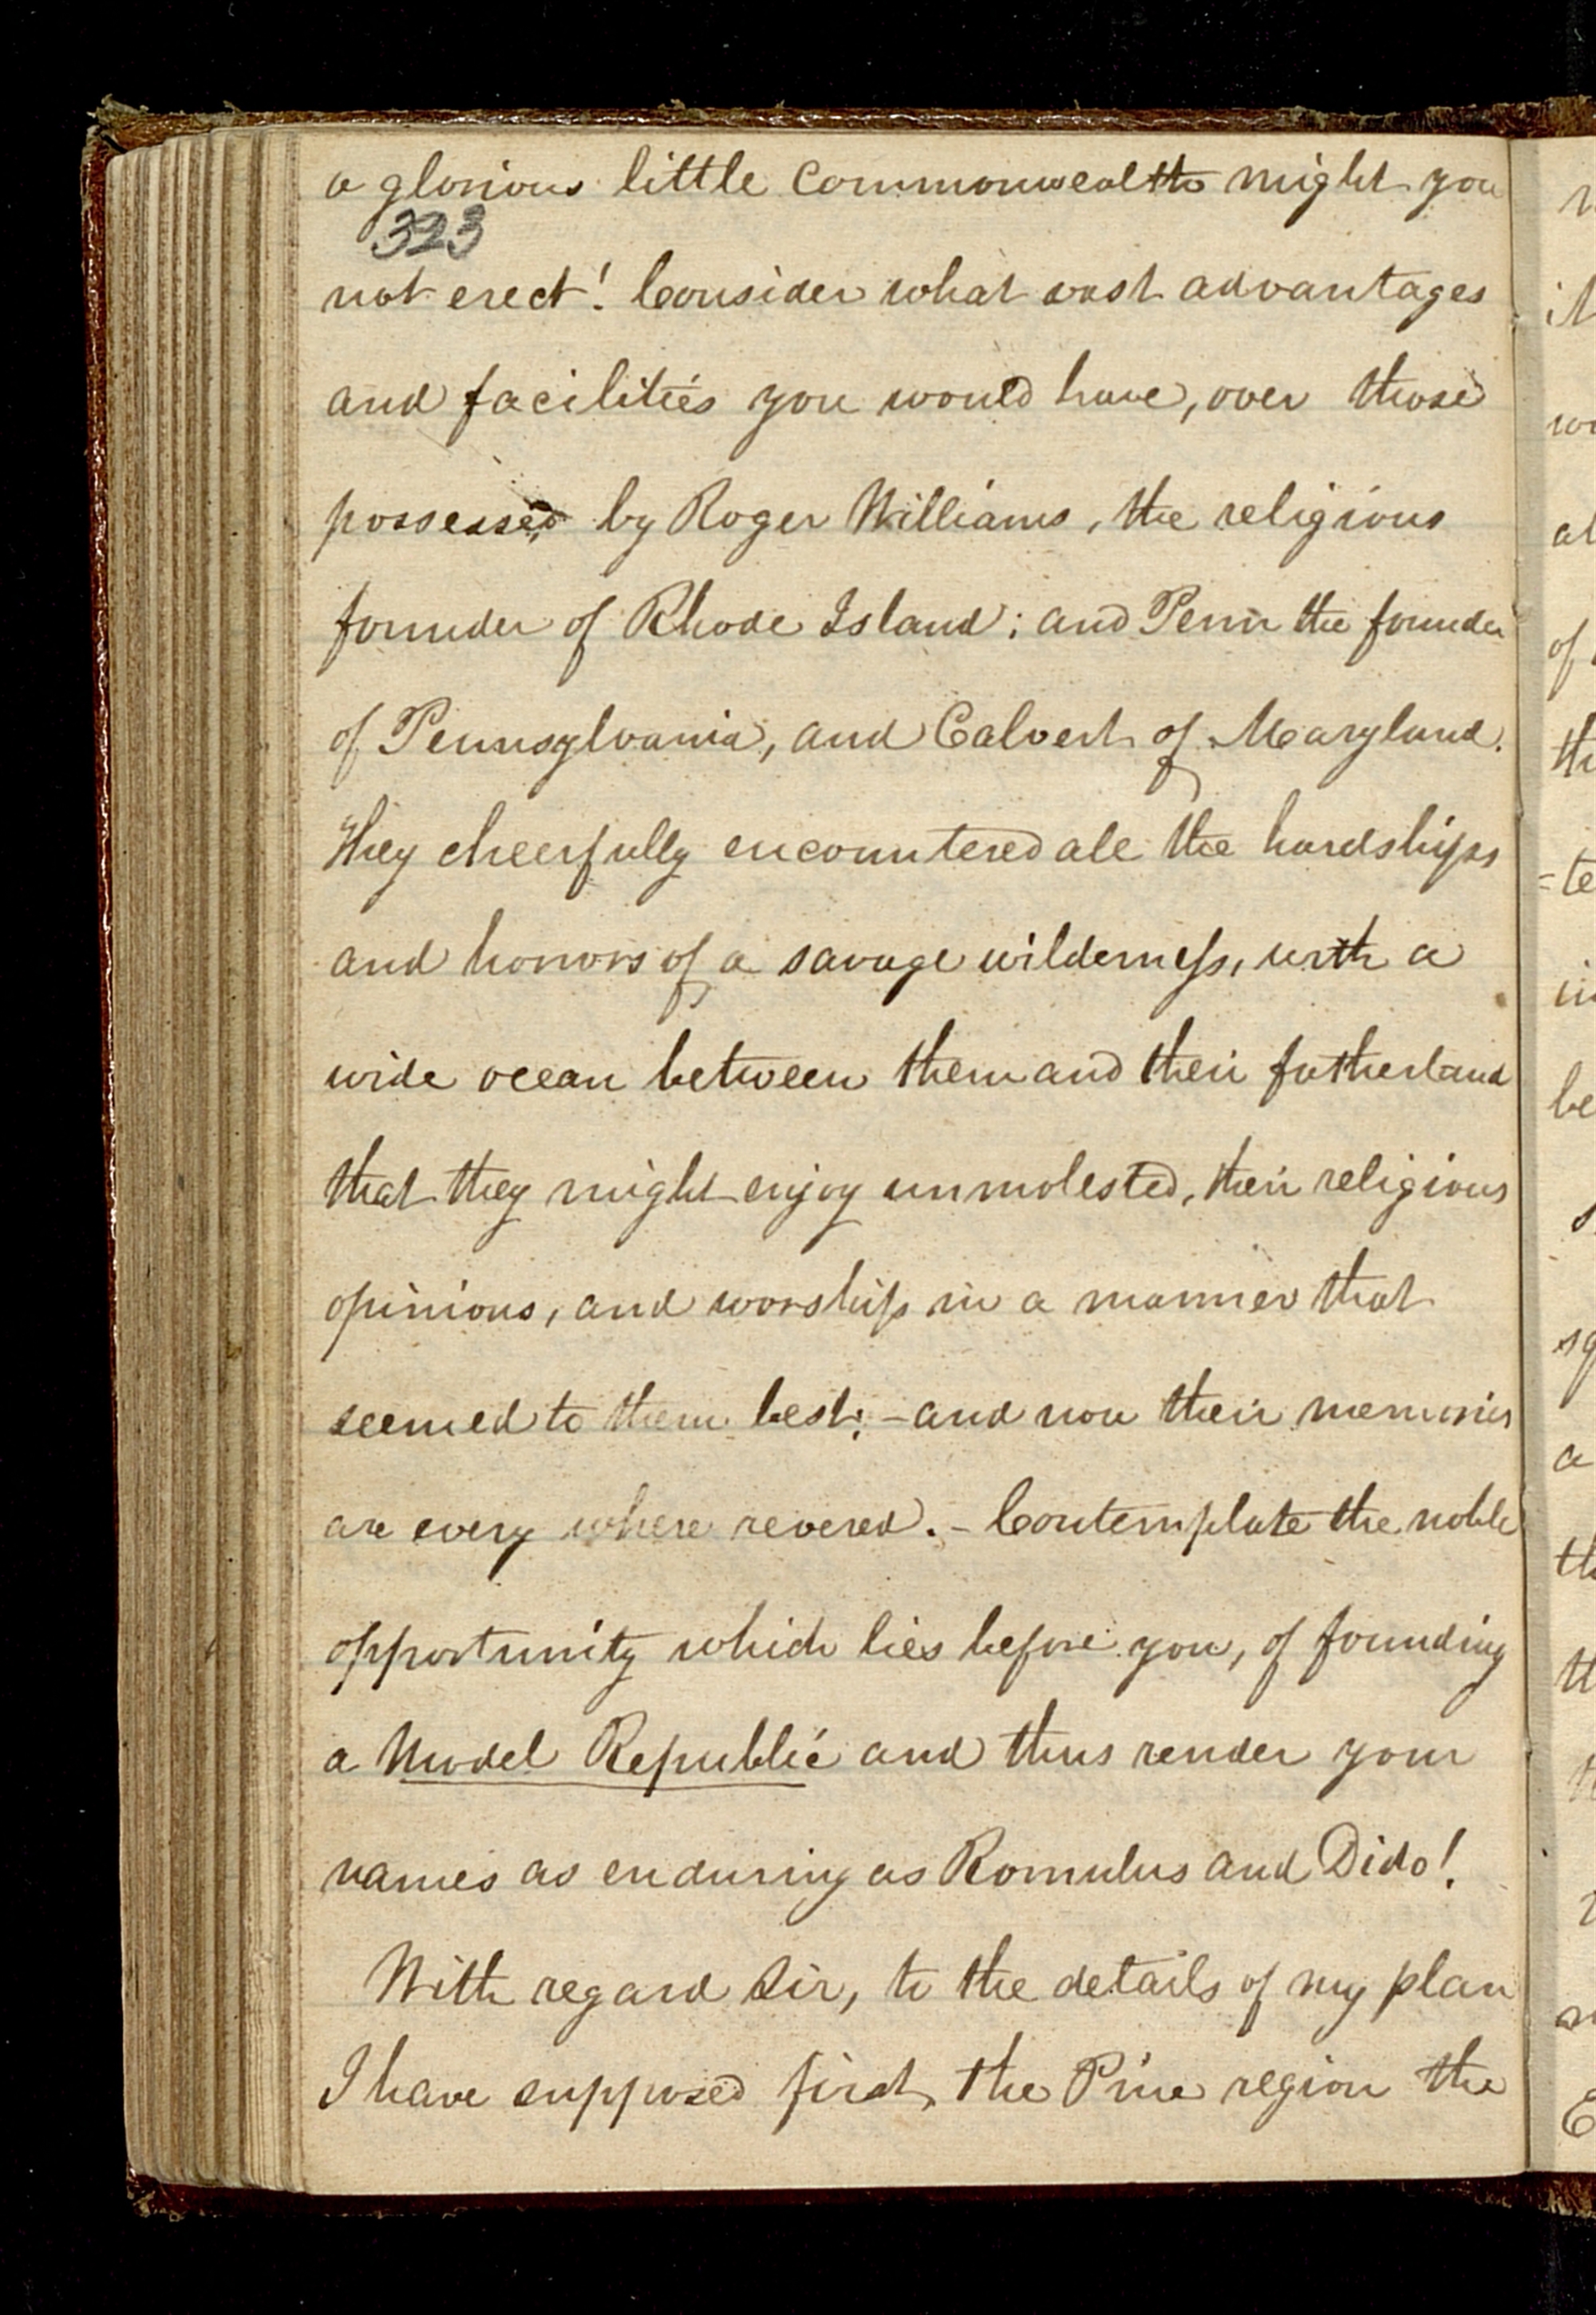 a glorious little commonwealth might you
323
not erect! Consider what vast advantages
and facilities you would have, over those
possessed by Roger Williams, the religious
founder of Rhode Island; and Penn the founder
of Pennsylvania, and Calvert of Maryland.
They cheerfully encountered all the hardships
and horrors of a savage wilderness, with a
wide ocean between them and their fatherland
that they might enjoy unmolested, their religious
opinions, and worship in a manner that
seemed to them best; - and now their memories
are every where revered. - Contemplate the noble
opportunity which lies before you, of founding
a Model Republic and thus render your
names as enduring as Romulus and Dido!
With regard Sir, to the details of my plan
I have supposed first, the Pine region the